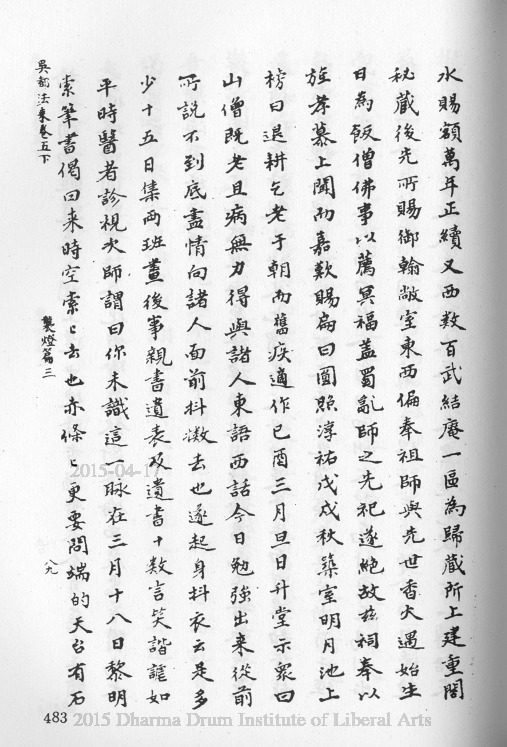 水賜額萬年正續又西数百武結庵一區為歸藏所上建重閣
秘藏後先所賜御翰敞室東西偏奉祖師與先世香火遇始生
日為飯僧佛事以薦冥福盖蜀亂師之先祀遂絶故茲祠奉以
旌孝慕上聞而嘉歎賜扁曰圓照淳祐戊戌秋築室明月池上
榜曰退耕乞老于朝而舊疾適作已酉三月旦日升堂示衆曰
山僧既老且病無力得與諸人東語西話今日勉強出来從前
所說不到底盡情向諸人面前抖擻去也遂起身抖衣云是多
少十五日集两班畫後事親書遺表及遺書十数言笑諧謔如
平時醫者診視次師謂曰你未識這一脉在三月十八日黎明
索筆書偈曰来時空索〻去也赤條〻更要問端的天台有石
吳都法乗卷五下
製燈篇三
八九
2015-04-17
483 2015 Dharma Drum Institute of Liberal Arts